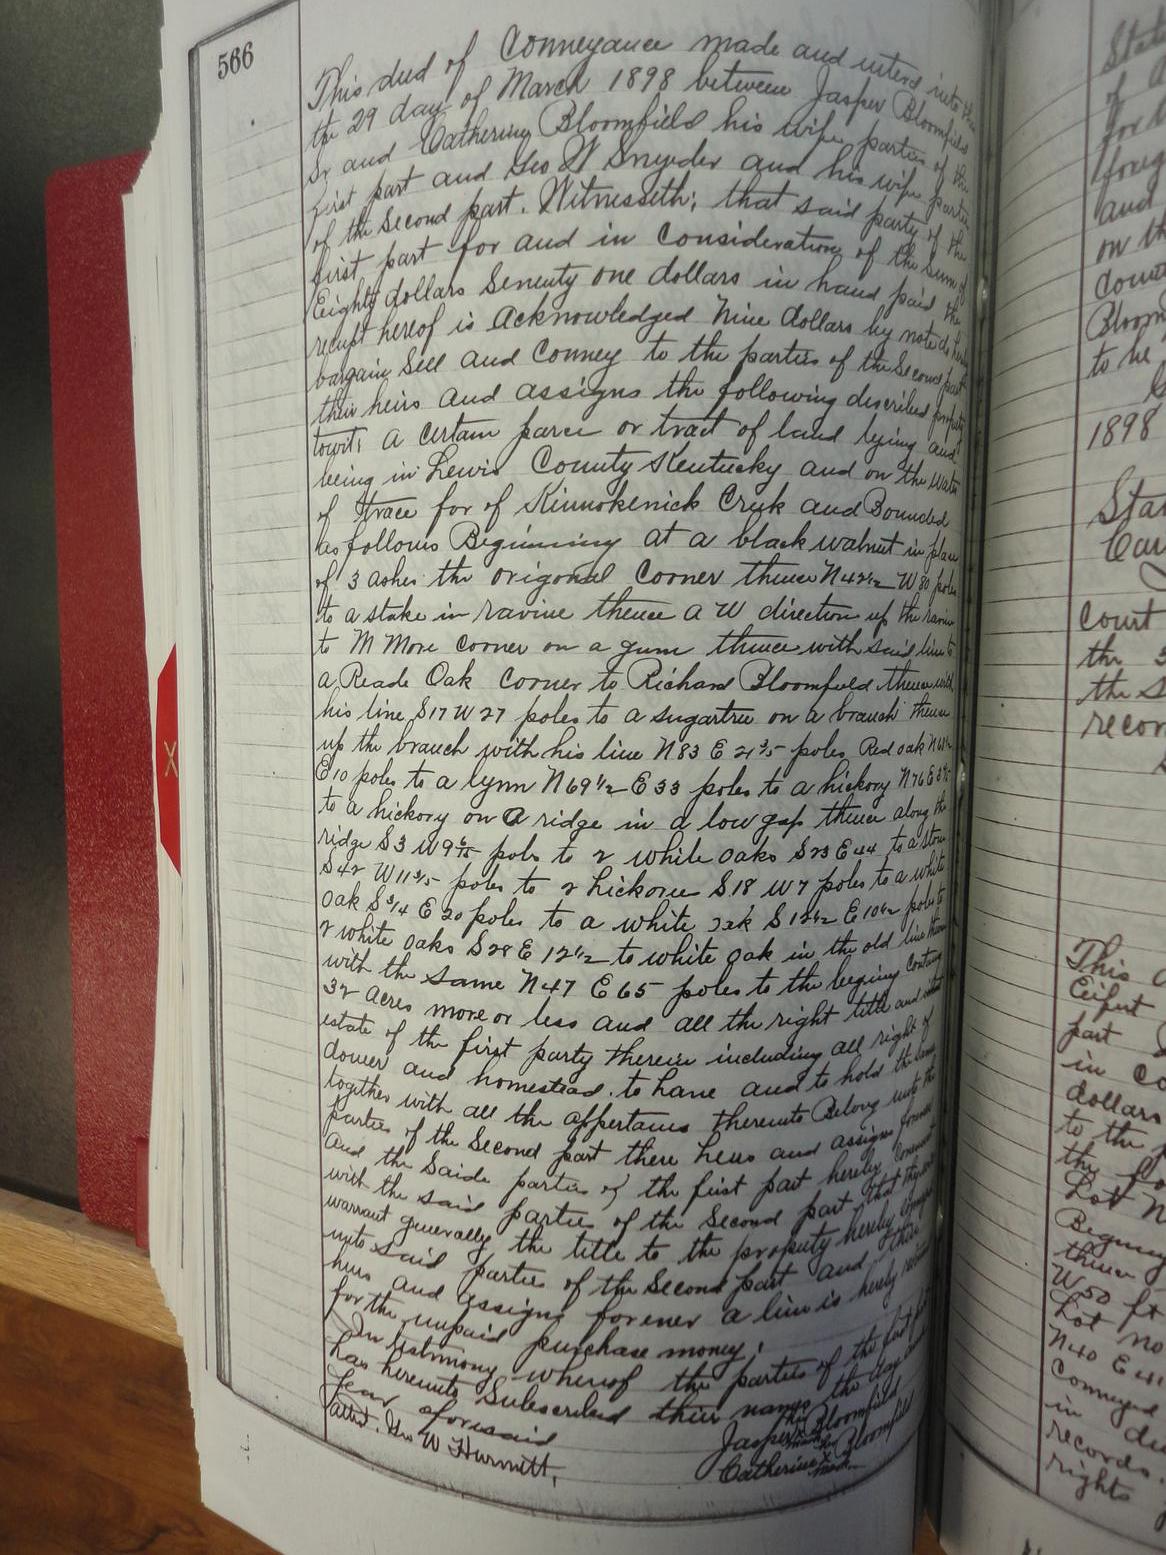 566
This deed of Conveyance made and entered into this
the 29 day of March 1898 between Jasper Bloomfield
Sr and Catherine Bloomfield his wife parties of the
first part and Geo W Snyder and his wife parties
of the Second part. Witnesseth; that said party of the
first part for and in Consideration of the Sum of
Eighty dollars Seventy one dollars in hand paid the
recipt hereof is Acknowledged Nine dollars by note do hereby
bargain Sell and Convey to the parties of the Second part
their heirs and assigns the following described property
towit; A certain parce or tract of land lying and
being in Lewis County Kentucky and on the Waters
of Trace for of Kinnokenick Creek and Bounded
as follows Beginning at a black walnut in place
of 3 ashes the origonal Corner thence N 42 1/2 W 80 poles
to a stake in ravine thence a W direction up the ravine
to M More corner on a gum thence with said line to
a Reade Oak Corner to Richard Bloomfield thence with
his line S17 W 27 poles to a sugartree on a branch thence
up the branch with his line N 83 E 21 3/5 poles Red oak
E10 poles to a lynn N 69 1/2 E 33 poles to a hickory N76 E
to a hickory on a ridge in a low gap thence along the
ridge S3 W 9 poles to 2 white oaks S23 E 44 to a stone
S42 W 11 3/5 poles to 2 hickories S18 W7 poles to a white
oak S 3/4 E 20 poles to a white oak S 12 1/2 E 10 1/2 poles to
2 white oaks S28 E 12 1/2 to white oak in the old line thence
with the same N47 E 65 poles to the begining Containg
32 Acres more or less and all the right title and
estate of the first party therein including all right of
dower and homestead. to have and to hold the same
together with all the appertains thereunto Belong unto the
parties of the Second part there heirs and assigns forever
and the Saide parties of the first part hereby Covenant
with the said parties of the Second part that they will
warrant generally the title to the property hereby
unto said parties of the Second part and their
heirs and assigns forever a lien is hereby
for the unpaid purchase money;
In testimony whereof the parties of the first part
has hereunto Subscribed their names the day and
year aforesaid
Jasper his mark Bloomfield
attest. Geo W Hurmitt,
Catherine x mark Bloomfield
State
of
for
foreg
and
on th
count
Bloom
to be
1898
Star
Court
the 3
the S
recor
This
Eifert
part
in Co
dollars
to the
the fo
Lot N
Begining
thence
W 50 ft
Lot no
N40 E
Conveyed
in de
records.
rights